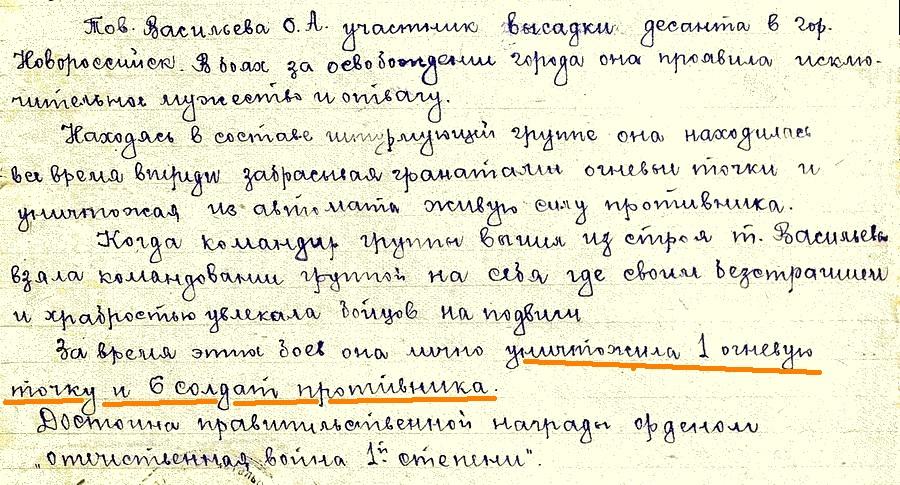 Тов. Васильева О.А. участник высадки десанта в гор.
Новороссийск. В боях за освобождении города она проявила исклю-
чительное мужество и отвагу.
Находясь в составе штурмующий группе она находилась
все время впереди забрасывая гранатами огневые точки и
уничтожая из автомата живую силу противника.
Когда командир группы вышел из строя т. Васильева
взяла командовании группой на себя где своим безстрашием
и храбростью увлекала бойцов на подвиги
За время этих боев она лично уничтожила 1 огневую
точку и 6 солдат противника.
Достойна правительственной награды орденом
"отечественная война 1й степени".